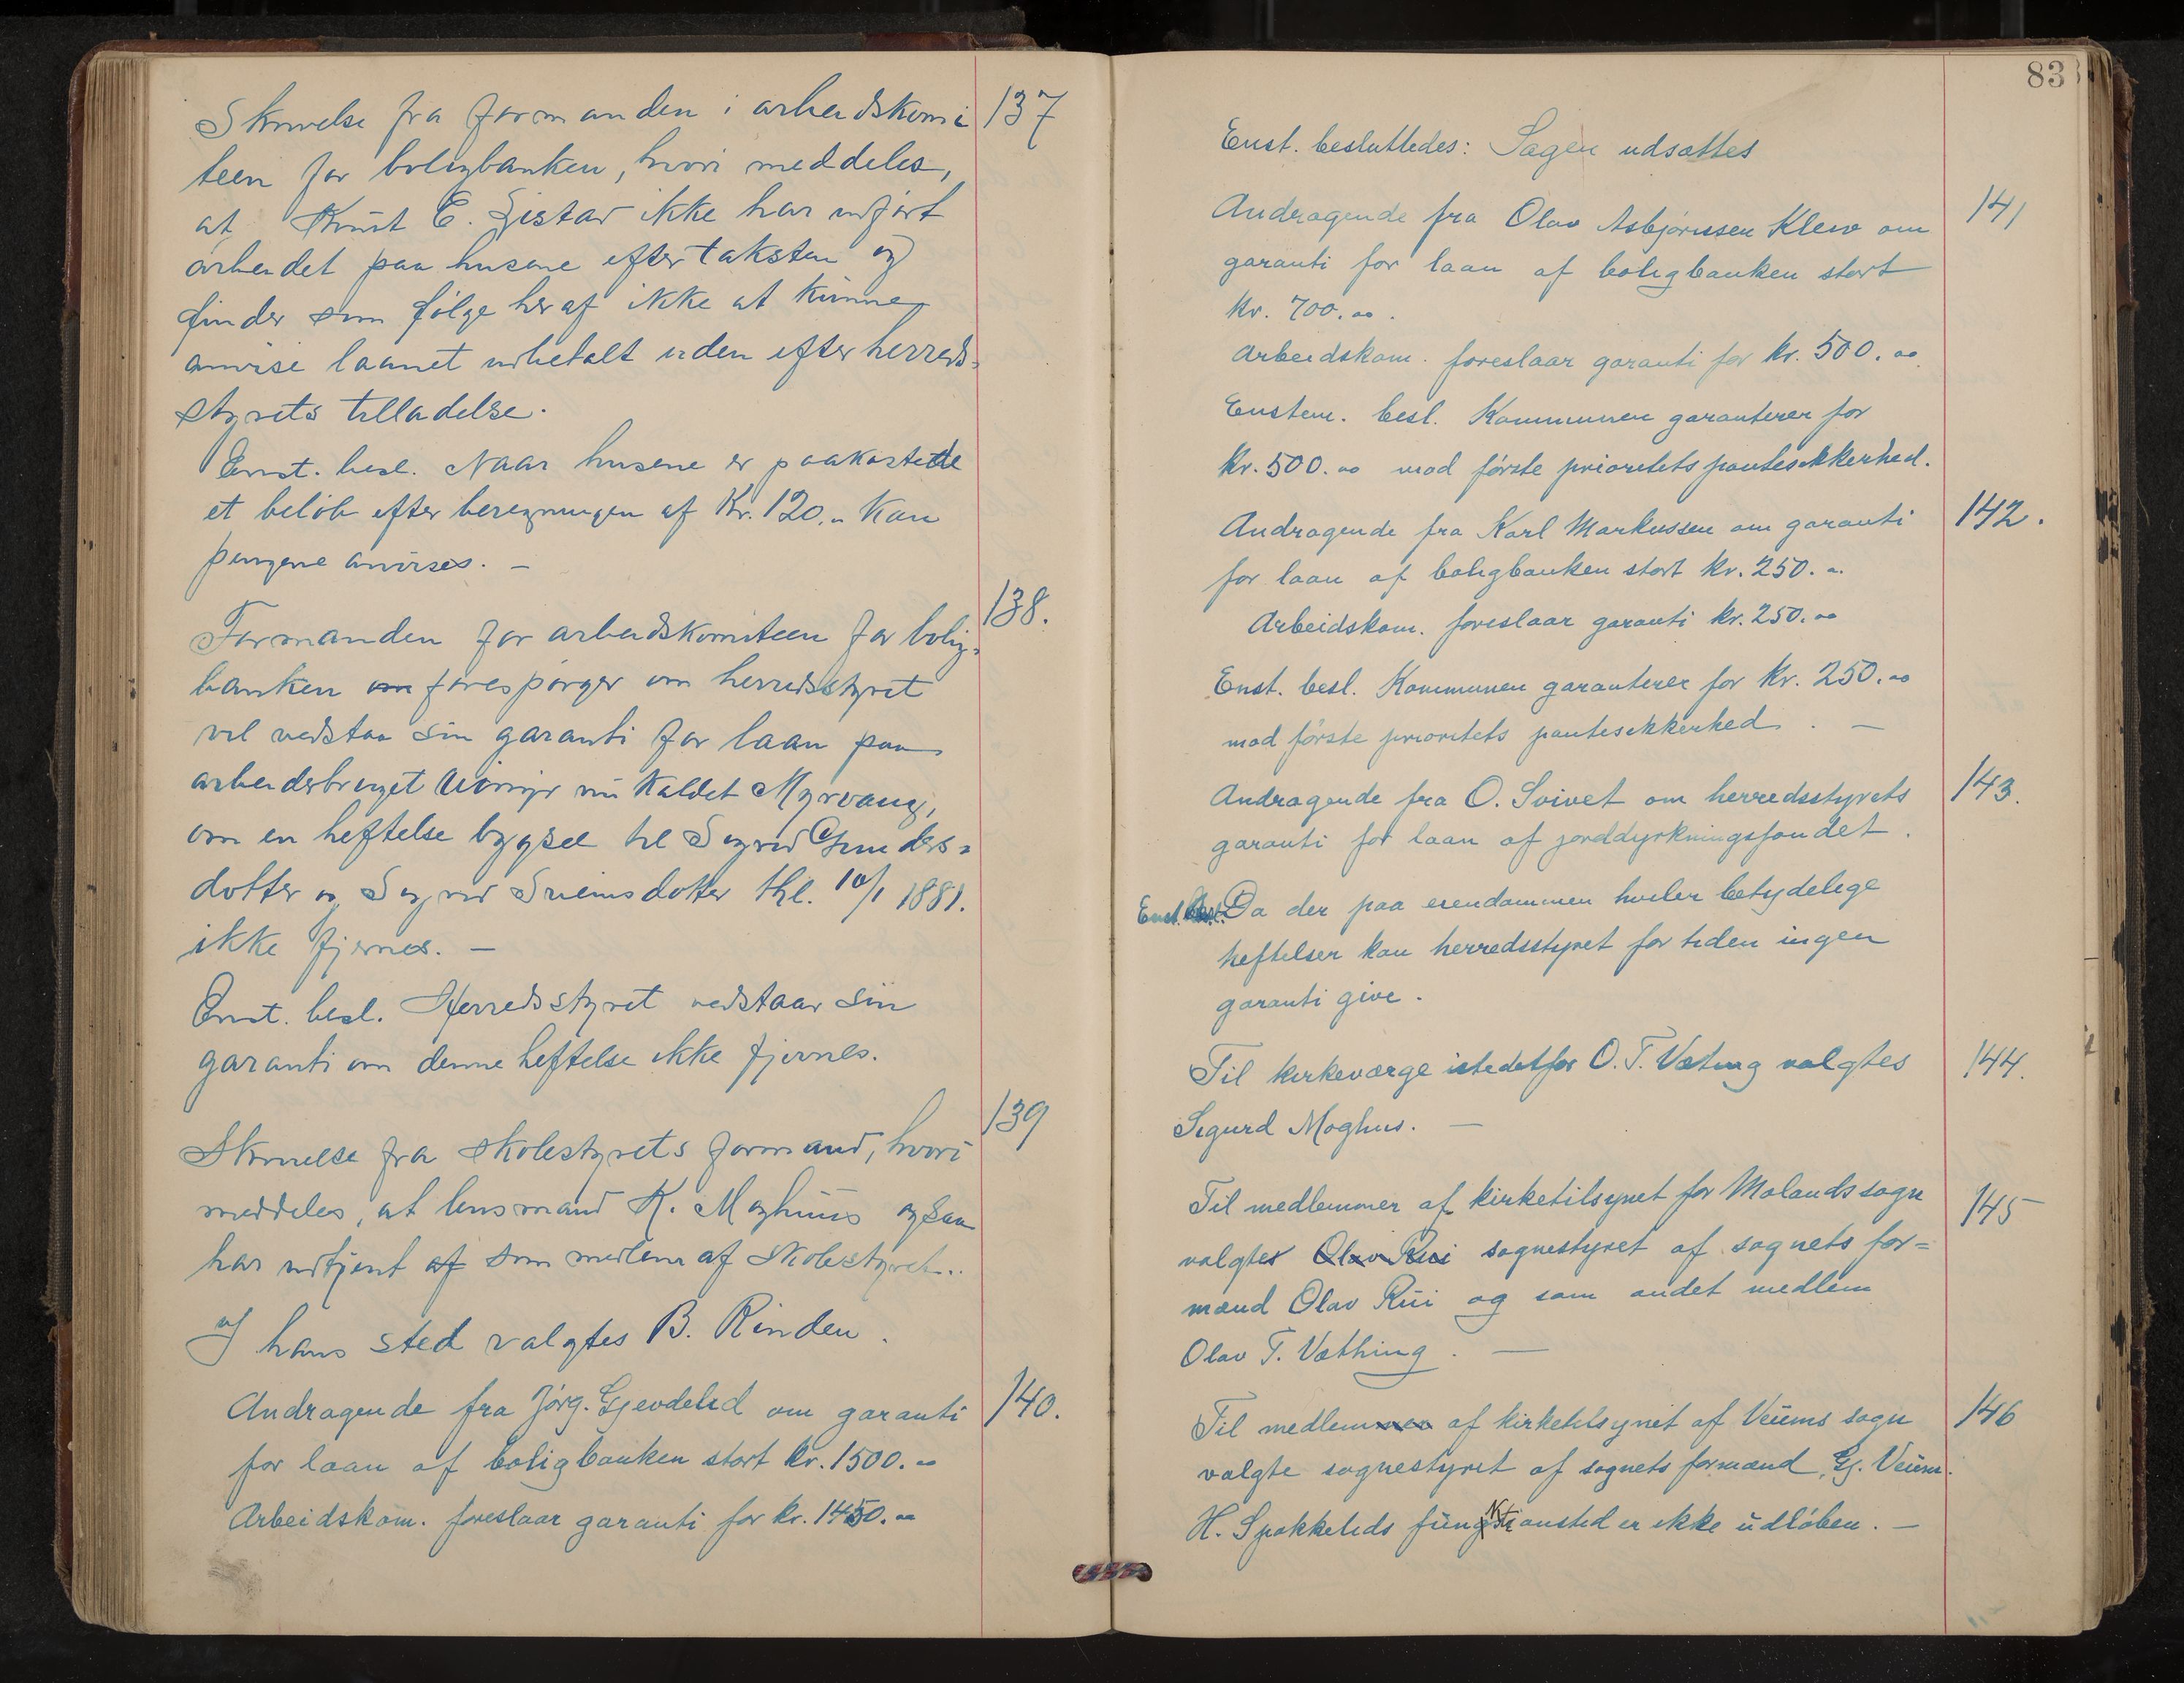 Skrivelse fra formanden i arbeidskomi 137
teen for boligbanken, hvori meddeles,
at Knut E. Sistad ikke har udført
arbeidet paa husene efter taksten og
finder som følge heraf ikke at kunne
anvise laanet udbetalt uden efter herreds-
styrets tilladelse.
Enst. besl. Naar husene er paakostede
et beløb efter beregningen af Kr. 120.- kan
pengene anvises. -
138.
Formanden for arbeidskomiteen for bolig-
banken forespørger om herredsstyret
vil vedstaa sin garanti for laan paa
arbeidsbruget nu kaldet Myrvang,
om en heftelse bygsel til Sigrid Gunders-
dotter og Sigrid Sveinsdotter thl. 10/1 1881.
ikke fjernes. -
Enst. besl. Herredsstyret vedstaar sin
garanti om denne heftelse ikke fjernes.
139
Skrivelse fra skolestyrets formand, hvori
meddeles, at lensmand K. Moghus ogsaa
har udtjent af som medlem af skolestyret..
I hans sted valgtes B. Rinden.
Andragende fra Jørg. Gjevdelid om garanti 140.
for laan af boligbanken stort kr. 1500.00
Arbeidskom. foreslaar garanti for kr. 1450.00
83
Enst. besluttedes: Sagen udsættes
Andragende fra Olav Asbjørnsen Kleiv om 141
garanti for laan af boligbanken stort
kr. 700.00.
Arbeidskom. foreslaar garanti for kr. 500.00
Enstem. besl. Kommunen garanterer for
kr. 500.00 mod første prioritets pantesikkerhed.
Andragende fra Karl Markussen om garanti 142.
for laan af boligbanken stort kr. 250.00
Arbeidskom. foreslaar garanti kr. 250.00
Enst. besl. Kommunen garanterer for kr. 250.00
mod første prioritets pantesikkerhed. -
Andragende fra O. Svivet om herredsstyrets 143.
garanti for laan af jorddyrkningsfondet.
Enst. Besl. Da der paa eiendommen hviler betydelige
heftelser kan herredsstyret for tiden ingen
garanti give.
Til kirkeværge istedetfor O. T. Væting valgtes 144.
Sigurd Moghus. -
Til medlemmer af kirketilsynet for Molands sogn 145
valgtes Olav Rui sognestyret af sognets for=
mænd Olav Rui og som andet medlem
Olav T. Væthing. -
Til medlemmer af kirketilsynet af Veums sogn 146
valgte sognestyret af sognets formænd, Gj. Veum.
H. Spokkelids funktionstid er ikke udløben. -